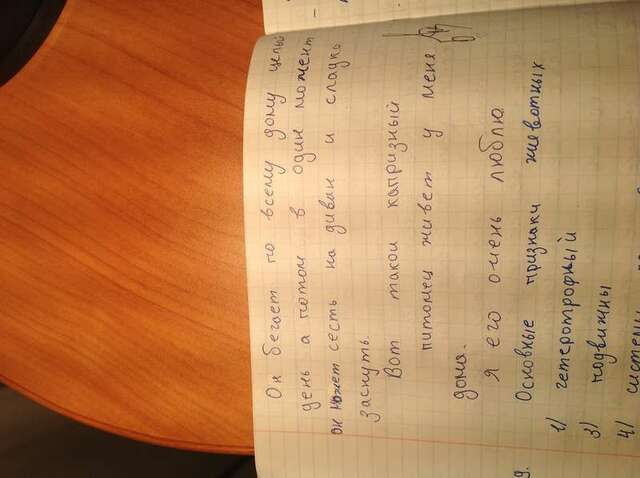 Он бегает по всему дому целый
день а потом в один момент
он может сесть на диван и сладко
заснуть.
Вот такой капризный
питомец живет у меня
дома.
Я его очень люблю
9. Основные признаки животных
1) гетеротрофный
3) подвижны
4)